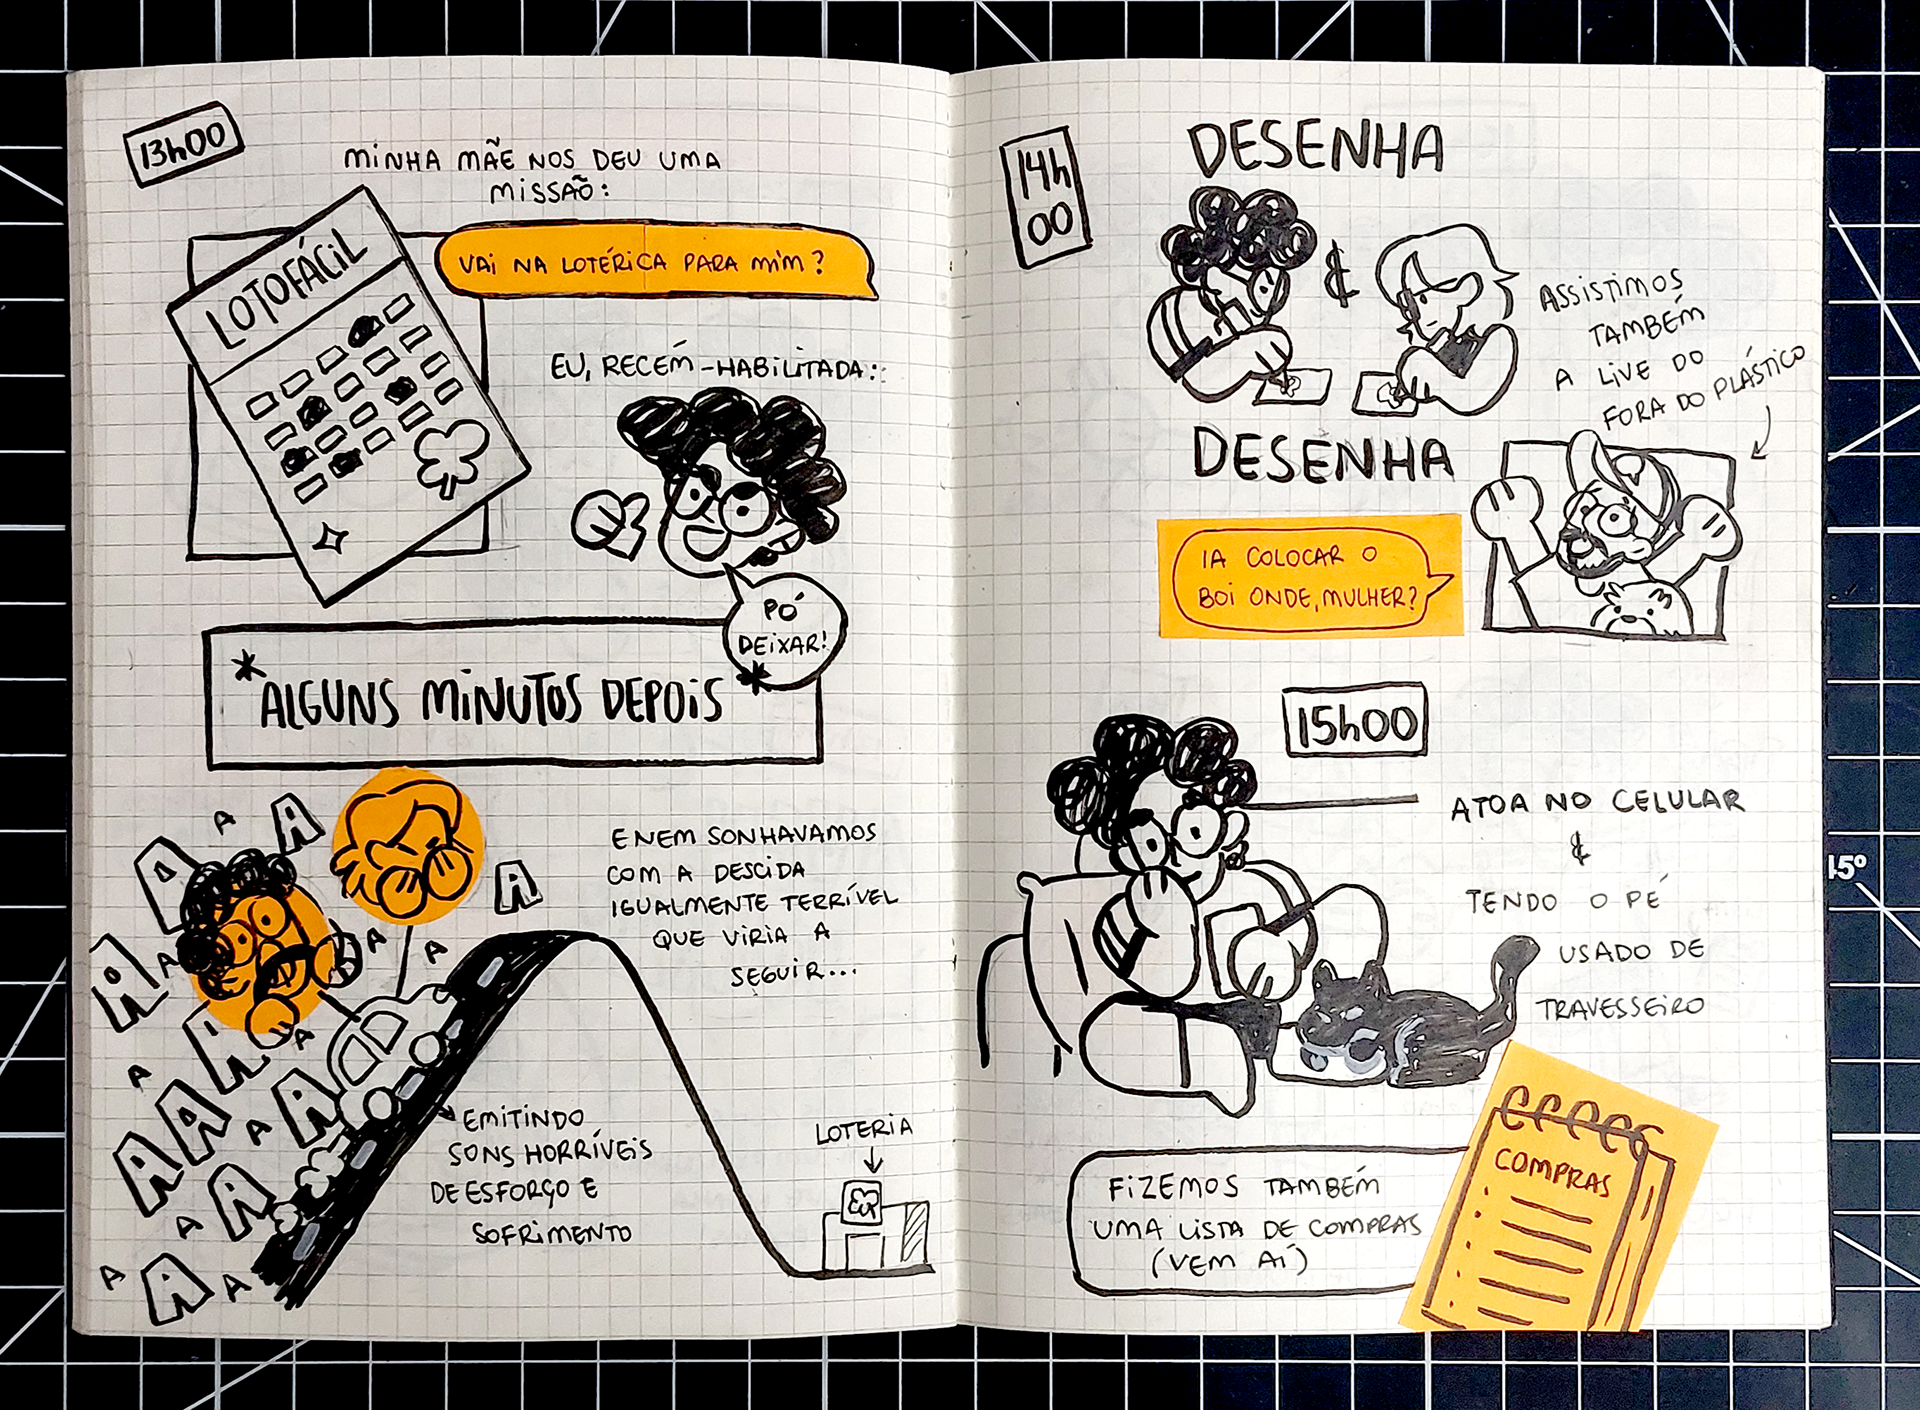 13h00
MINHA MÃE NOS DEU UMA
MISSÃO:
LOTOFÁCIL
VAI NA LOTÉRICA PARA MIM?
EU, RECÉM-HABILITADA:
PÓ
DEIXAR!
*ALGUNS MINUTOS DEPOIS*
A A
A
A
A
A A A
A
A
A
A A A
A A
A
A
A A A
E NEM SONHAVAMOS
COM A DESCIDA
IGUALMENTE TERRÍVEL
QUE VIRIA A
SEGUIR...
EMITINDO
SONS HORRÍVEIS
DE ESFORÇO E
SOFRIMENTO
LOTERIA
14h
00
DESENHA
&
ASSISTIMOS
TAMBÉM
A LIVE DO
FORA DO PLÁSTICO
DESENHA
IA COLOCAR O
BOI ONDE, MULHER?
15h00
ATOA NO CELULAR
&
TENDO O PÉ
USADO DE
TRAVESSEIRO
FIZEMOS TAMBÉM
UMA LISTA DE COMPRAS
(VEM AÍ)
COMPRAS
15°